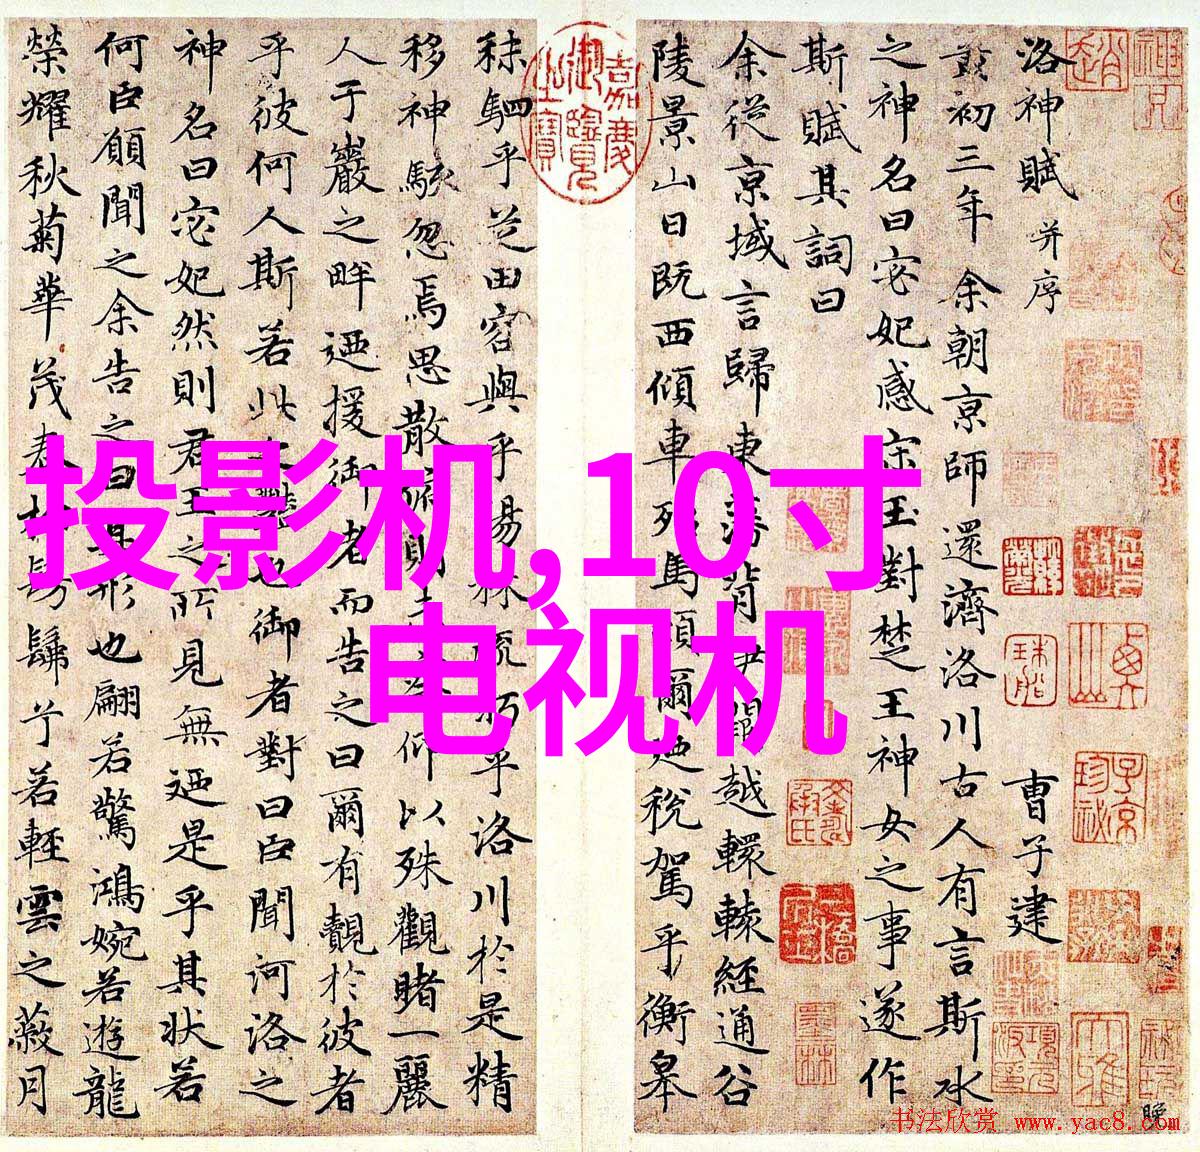 投影机,10寸
电视机
洛神賦 并序 曹子建
黃初三年余朝京師還濟洛川古人有言斯水
之神名曰宓妃感宋玉對楚王神女之事遂作
斯賦其詞曰
余從京域言歸東藩背伊闕越轘轅經通谷
陵景山日既西傾車殆馬煩爾廼稅駕乎衡皋
嘉慶御覽之寶
秣駟乎芝田容與乎楊林流眄乎洛川於是精
移神駭忽焉思散俯則未察仰以殊觀睹一麗
人于巖之畔廼援御者而告之曰爾有覿於彼者
乎彼何人斯若此之豔也御者對曰臣聞河洛之
神名曰宓妃然則君王之所見無廼是乎其狀若
何臣願聞之余告之曰其形也翩若驚鴻婉若遊龍
榮耀秋菊華茂春松髣髴兮若輕雲之蔽月
书法欣赏 www.yac8.com